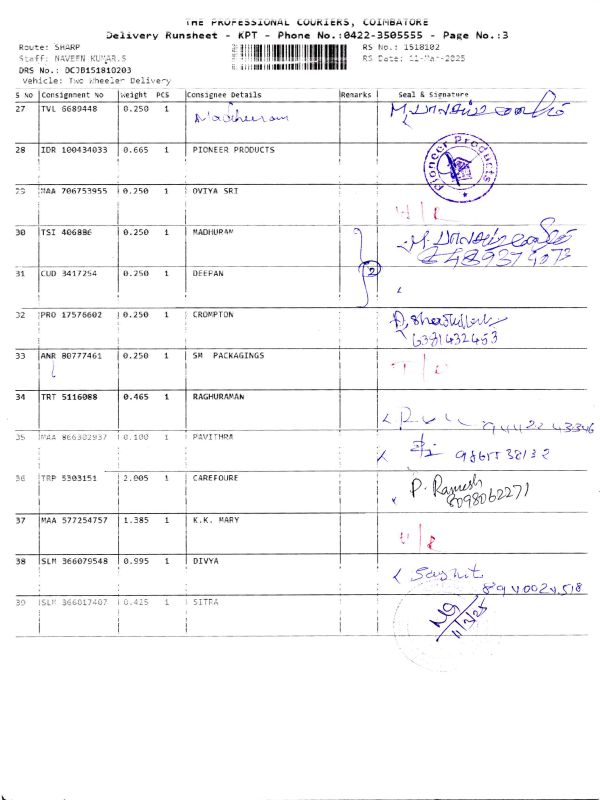 THE PROFESSIONAL COURIERS, COIMBATORE
Delivery Runsheet - KPT - Phone No.:0422-3505555 - Page No.:3
Route: SHARP
RS No.: 1518102
Staff: NAVEEN KUMAR.S
RS Date: 11-Mar-2025
DRS No.: DCJB151810203
Vehicle: Two Wheeler Delivery
S NO Consignment No Weight PCS Consignee Details Remarks Seal & Signature
27 TVL 6689448 0.250 1
28 IDR 100434033 0.665 1 PIONEER PRODUCTS Pioneer Products
29 MAA 706753955 0.250 1 OVIYA SRI
30 TSI 406886 0.250 1 MADHURAM
31 CUD 3417254 0.250 1 DEEPAN
2
32 PRO 17576602 0.250 1 CROMPTON
6381432453
33 ANR 80777461 0.250 1 SM PACKAGINGS
34 TRT 5116088 0.465 1 RAGHURAMAN
35 MAA 866302937 0.100 1 PAVITHRA
36 TRP 5303151 2.005 1 CAREFOURE P. Rajnesh
8098062271
37 MAA 577254757 1.385 1 K.K. MARY
38 SLM 366079548 0.995 1 DIVYA
39 SLM 366017407 0.425 1 SITRA
11/3/25